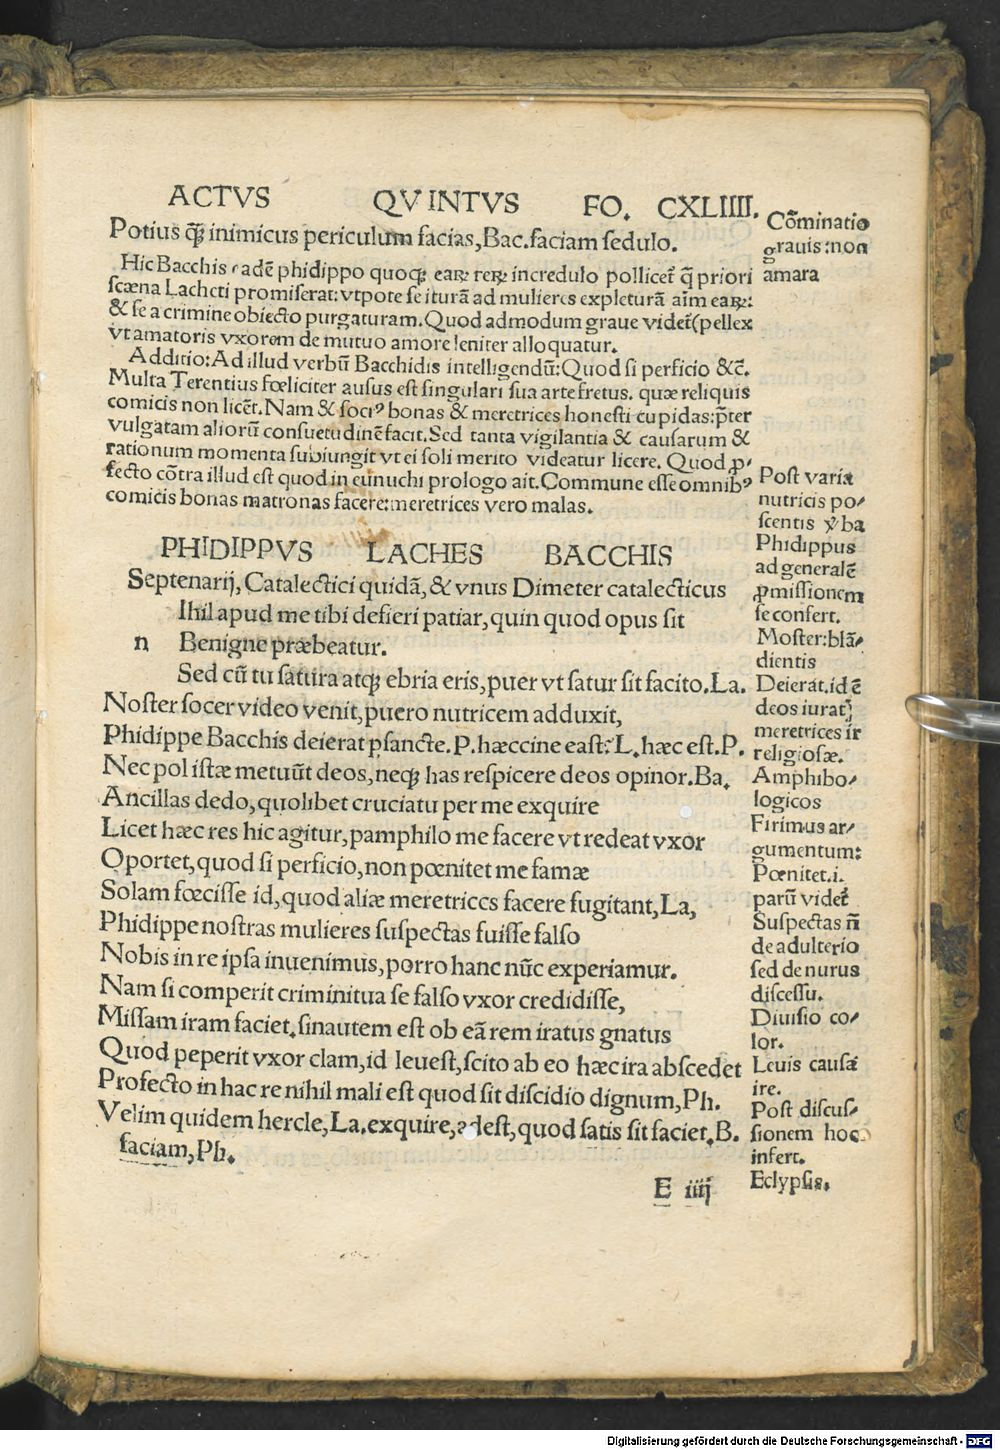 ACTVS QVINTVS FO. CXLIIII.
Potius q̃ꝫ inimicus periculum facias, Bac. faciam sedulo.
Hic Bacchis eadẽ phidippo quoqꝫ eaꝝ reꝝ incredulo pollicet᷑ q̃ priori
scæna Lacheti promiserat: vtpote se iturã ad mulieres expleturã aĩm eaꝝ:
& se a crimine obiecto purgaturam. Quod admodum graue videt᷑ (pellex
vt amatoris vxorem de mutuo amore leniter alloquatur.
Additio: Ad illud verbũ Bacchidis intelligendũ: Quod si perficio &c̃.
Multa Terentius fœliciter ausus est singulari sua arte fretus. quæ reliquis
comicis non licẽt. Nam & socr⁹ bonas & meretrices honesti cupidas: p̃ter
vulgatam aliorũ consuetudinẽ facit. Sed tanta vigilantia & causarum &
rationum momenta subiungit vt ei soli merito videatur licere. Quod ꝓ⸗
fecto cõtra illud est quod in eunuchi prologo ait. Commune esse omnib⁹
comicis bonas matronas facere: meretrices vero malas.
PHIDIPPVS LACHES BACCHIS
Septenarij, Catalectici quidã, & vnus Dimeter catalecticus
Ihil apud me tibi defieri patiar, quin quod opus sit
n Benigne præbeatur.
Sed cũ tu satura atqꝫ ebria eris, puer vt satur sit facito. La.
Noster socer video venit, puero nutricem adduxit,
Phidippe Bacchis deierat psancte. P. hæccine east: L. hæc est. P.
Nec pol istæ metuũt deos, neqꝫ has respicere deos opinor. Ba.
Ancillas dedo, quolibet cruciatu per me exquire
Licet hæc res hic agitur, pamphilo me facere vt redeat vxor
Oportet, quod si perficio, non pœnitet me famæ
Solam fœcisse id, quod aliæ meretrices facere fugitant, La,
Phidippe nostras mulieres suspectas fuisse falso
Nobis in re ipsa inuenimus, porro hanc nũc experiamur.
Nam si comperit crimini tua se falso vxor credidisse,
Missam iram faciet. sin autem est ob eã rem iratus gnatus
Quod peperit vxor clam, id leuest, scito ab eo hæc ira abscedet
Profecto in hac re nihil mali est quod sit discidio dignum, Ph.
Velim quidem hercle, La. exquire, adest, quod satis sit faciet. B.
faciam, Ph.
E iiij
Cõminatio
grauis: non
amara
Post varia
nutricis po⸗
scentis v̾ba
Phidippus
ad generalẽ
ꝓmissionem
se confert.
Moster: blã⸗
dientis
Deierat. id ẽ
deos iurat,
meretrices ir
religiosæ.
Amphibo⸗
logicos
Firimus ar⸗
gumentum:
Pœnitet. i.
parũ videt᷑
Suspectas ñ
de adulterio
sed de nurus
discessu.
Diuisio co⸗
lor.
Leuis causa
ire.
Post discus⸗
sionem hoc
infert.
Eclypsis.
Digitalisierung gefördert durch die Deutsche Forschungsgemeinschaft - DFG